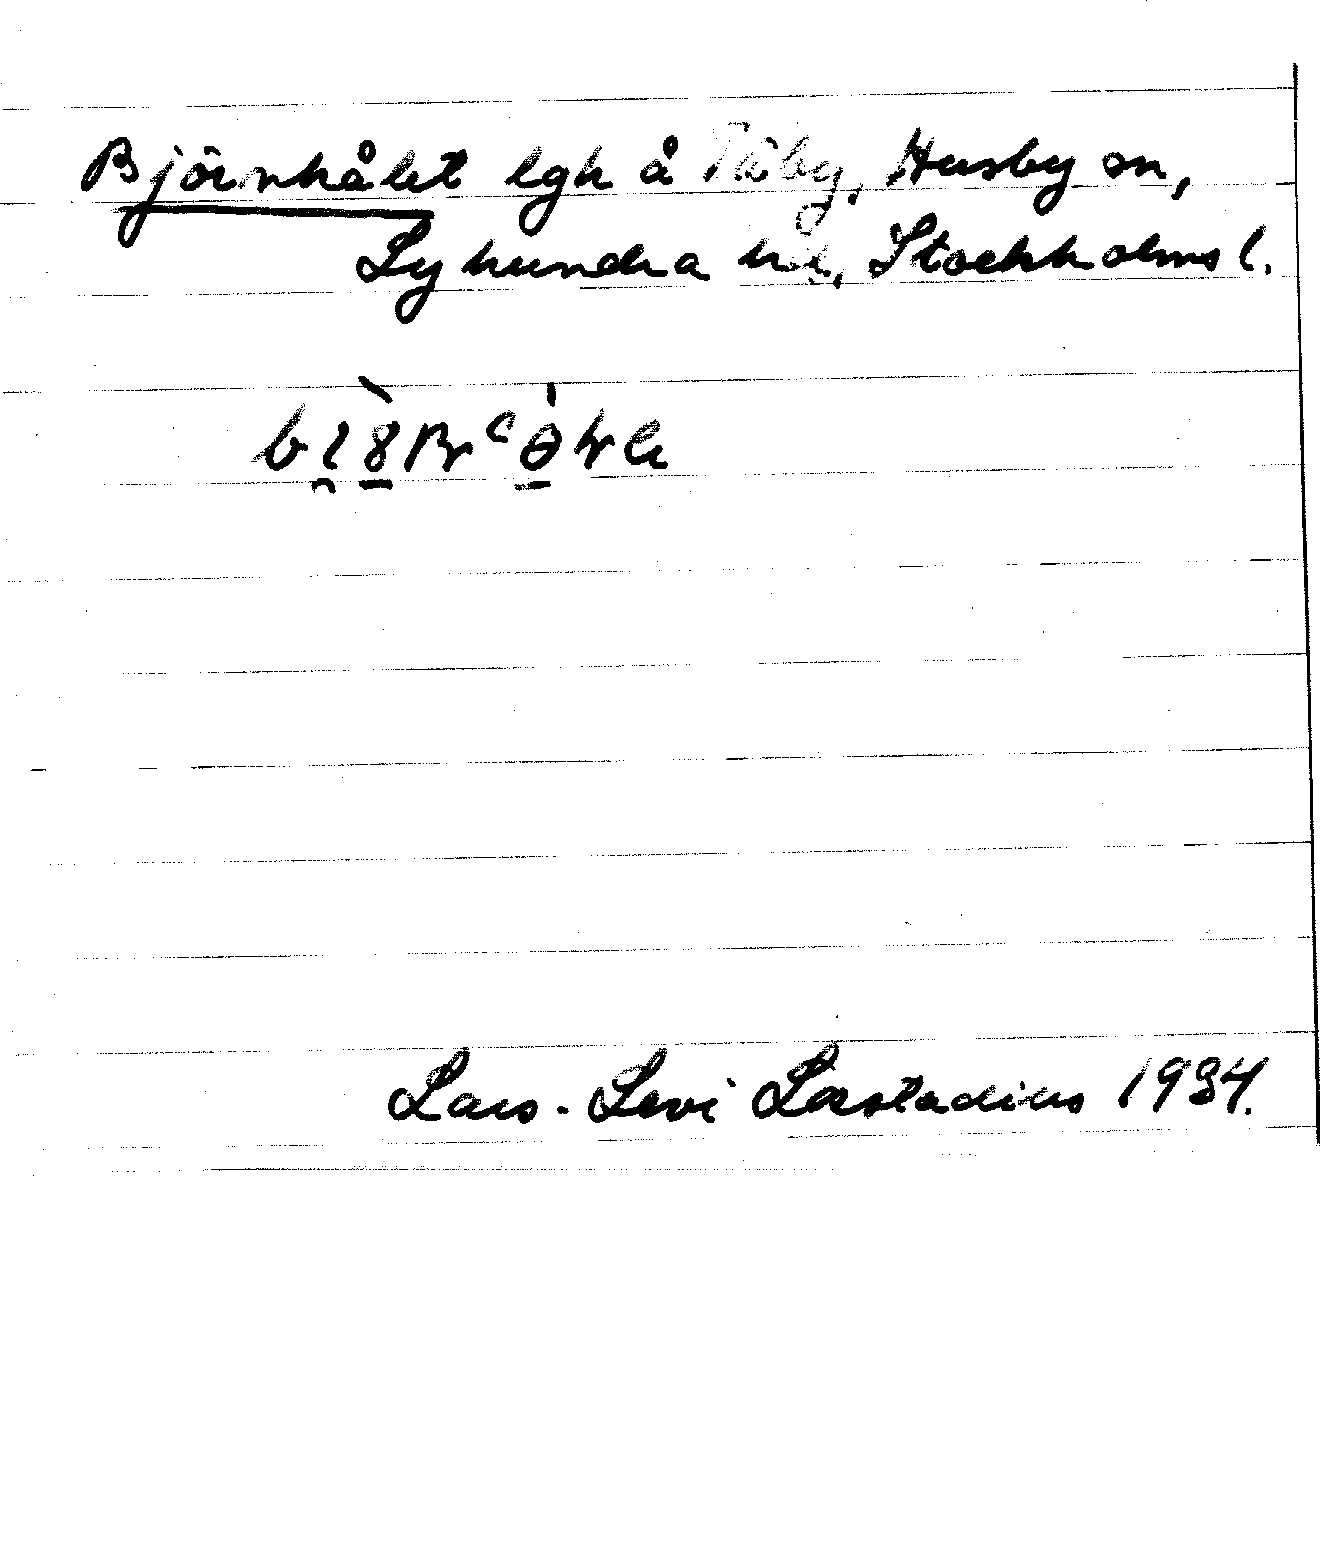 Björnhålet lgh å Täby, Husby sn,
Lyhundra hd, Stockholms l.
Lars-Levi Læstadius 1934.